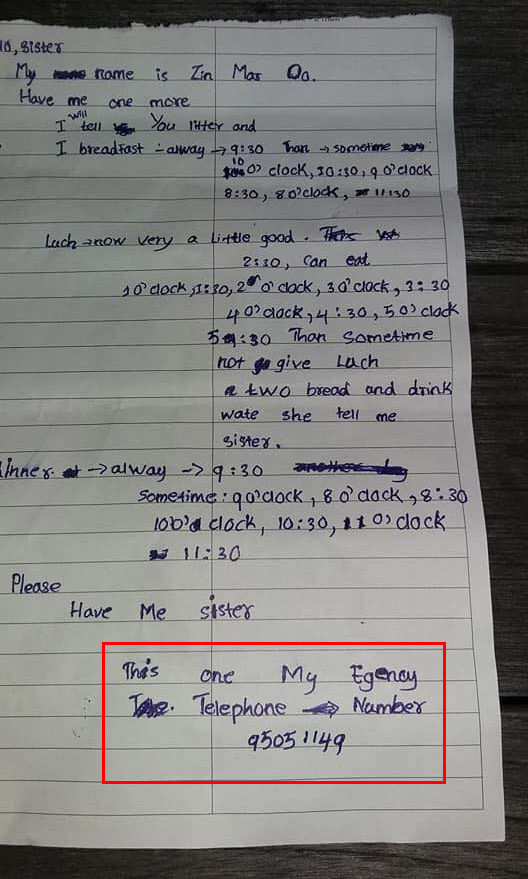 lo, sister
My name is Zin Mar Oo.
Have me one more
I will tell You litter and
I breadfast - alway → 9:30 Than → sometime
10 O' clock, 10:30, 9 O'clock
8:30, 8 O'clock, 11:30
Luch → now very a little good.
2:30, can eat
1 O'clock, 1:30, 2 O'clock, 3 O'clock, 3:30
4 O'clock, 4:30, 5 O'clock
5:30 Than sometime
not give Luch
a two bread and drink
wate she tell me
sister.
inner. → alway → 9:30
sometime: 9 O'clock, 8 O'clock, 8:30
10 O' clock, 10:30, 11 O'clock
11:30
Please
Have Me sister
This one My Egency
Telephone → Number
95051149